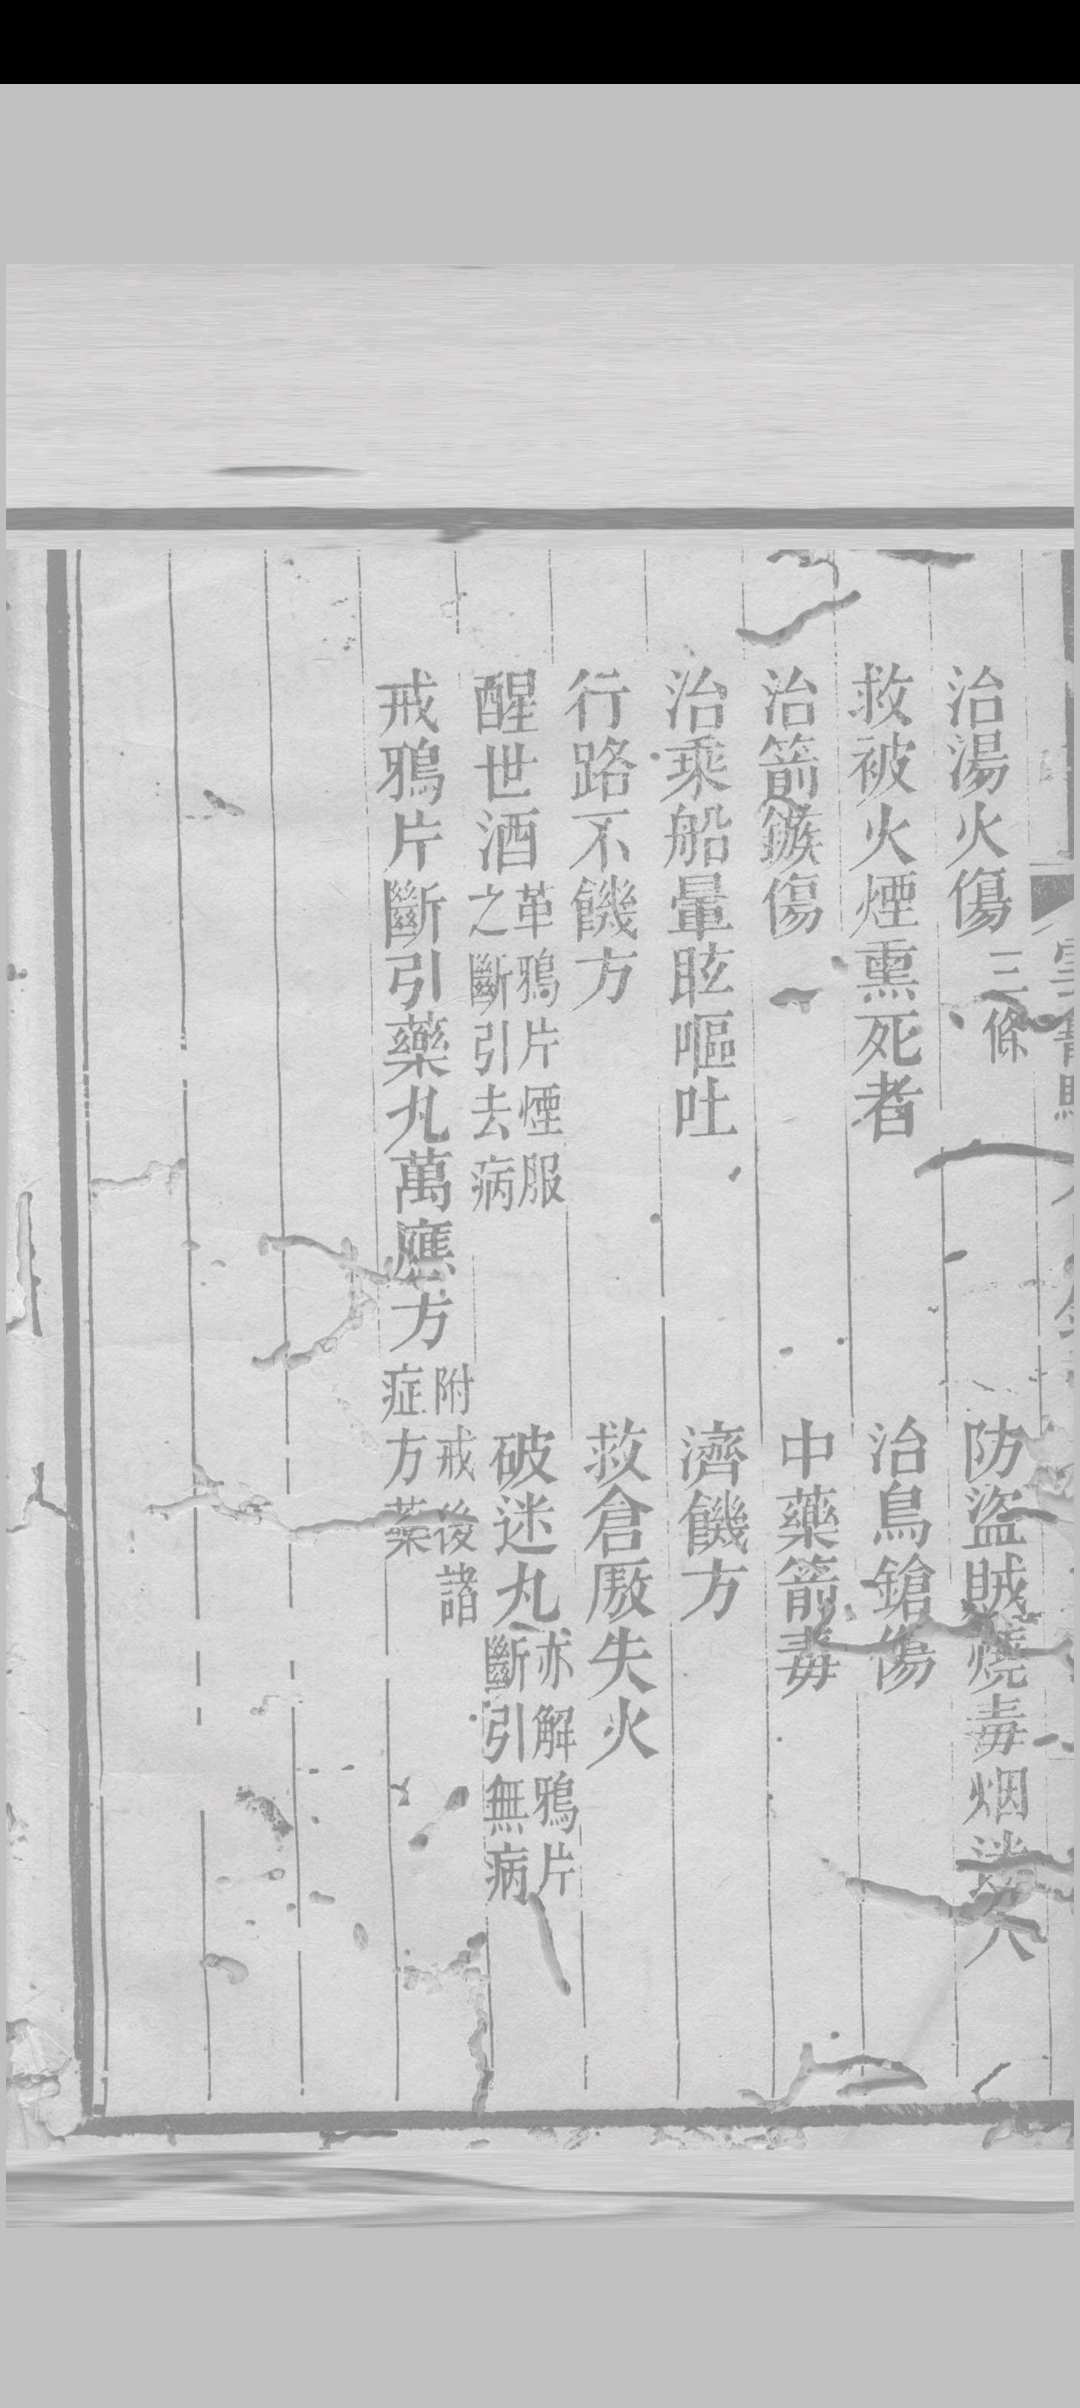 治湯火傷三條　防盜賊燒毒烟迷人
救被火煙熏死者　治鳥鎗傷
治箭鏃傷　中藥箭毒
治乘船暈眩嘔吐　濟饑方
行路不饑方　救倉厫失火
醒世酒革鴉片煙服之斷引去病　破迷丸亦解鴉片斷引無病
戒鴉片斷引藥丸萬應方附戒後諸症方藥